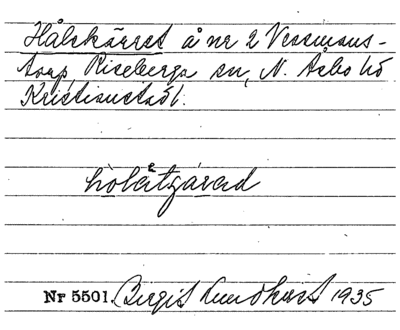 Hålekärret å nr 2 Vessmans-
torp, Riseberga sn, N. Åsbo hd
Kristianstad l.
Nr 5501. Birgit Lundkvist 1935